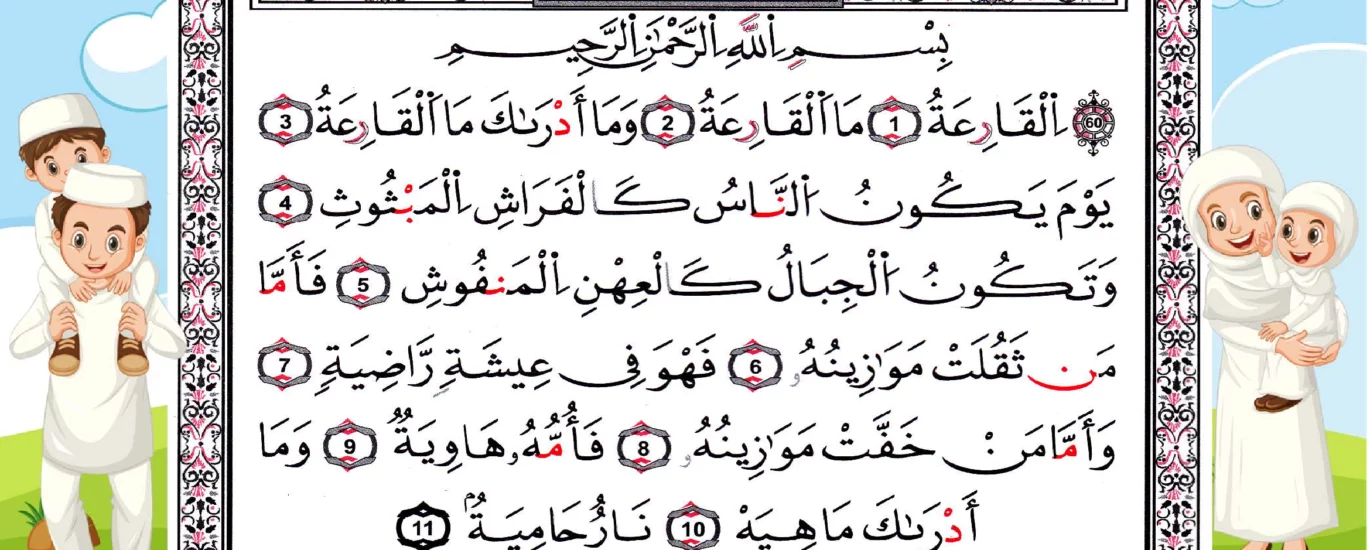 بِسْمِ اِ۬للَّهِ اِ۬لرَّحْمَٰنِ اِ۬لرَّحِيمِ
60 اِ۬لْقَارِعَةُ 1 مَا اَ۬لْقَارِعَةُ 2 وَمَا أَدْرَىٰكَ مَا اَ۬لْقَارِعَةُ 3
يَوْمَ يَكُونُ اُ۬لنَّاسُ كَالْفَرَاشِ اِ۬لْمَبْثُوثِ 4
وَتَكُونُ اُ۬لْجِبَالُ كَالْعِهْنِ اِ۬لْمَنفُوشِ 5 فَأَمَّا
مَن ثَقُلَتْ مَوَٰزِينُهُۥ 6 فَهْوَ فِي عِيشَةٍ رَّاضِيَةٍ 7
وَأَمَّا مَنْ خَفَّتْ مَوَٰزِينُهُۥ 8 فَأُمُّهُۥ هَاوِيَةٌ 9 وَمَا
أَدْرَىٰكَ مَا هِيَهْ 10 نَارٌ حَامِيَةٌۢ 11